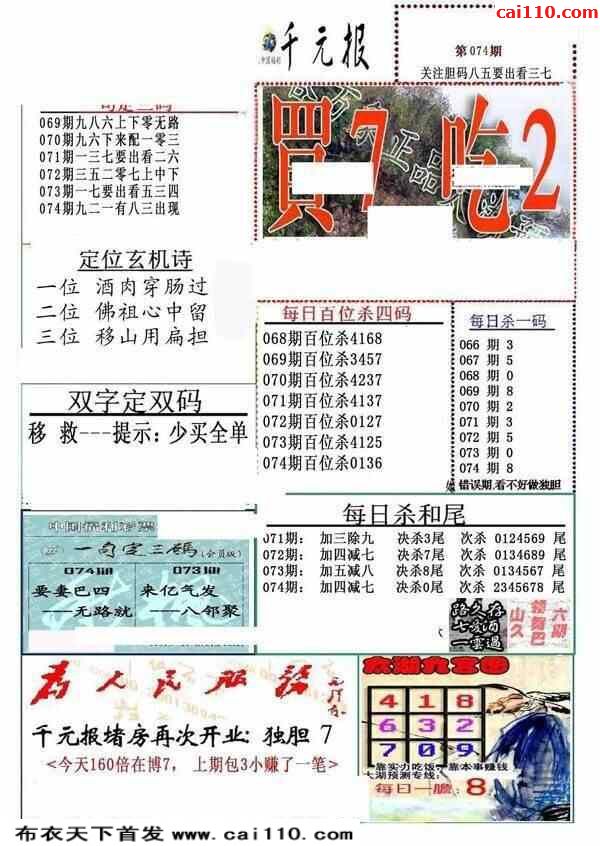 cai110.com
千元报
第074期
关注胆码八五要出看三七
069期九八六上下零无路
070期九六下来配一零三
071期一三七要出看二六
072期三五二零七上中下
073期一七要出看五三四
074期九二一有八三出现
買7 吃2
定位玄机诗
一位 酒肉穿肠过
二位 佛祖心中留
三位 移山用扁担
每日百位杀四码
068期百位杀4168
069期百位杀3457
070期百位杀4237
071期百位杀4137
072期百位杀0127
073期百位杀4125
074期百位杀0136
每日杀一码
066 期 3
067 期 5
068 期 0
069 期 8
070 期 2
071 期 3
072 期 5
073 期 0
074 期 8
错误期,看不好做独胆
双字定双码
移 救---提示:少买全单
每日杀和尾
071期: 加三除九 决杀3尾 次杀 0124569 尾
072期: 加四减七 决杀7尾 次杀 0134689 尾
073期: 加五减八 决杀8尾 次杀 0134567 尾
074期: 加四减七 决杀0尾 次杀 2345678 尾
中国福利彩票
一句定三码(会员版)
074期 073期
要妻巴四 来亿气发
——无路就 ——八邻聚
为人民服务
千元报堵房再次开业: 独胆 7
<今天160倍在博7, 上期包3小赚了一笔>
太湖九宫图
4 1 8
6 3 2
7 0 9
靠实力吃饭,靠本事赚钱
太湖预测专线:
每日一胆: 8
布衣天下首发 www.cai110.com